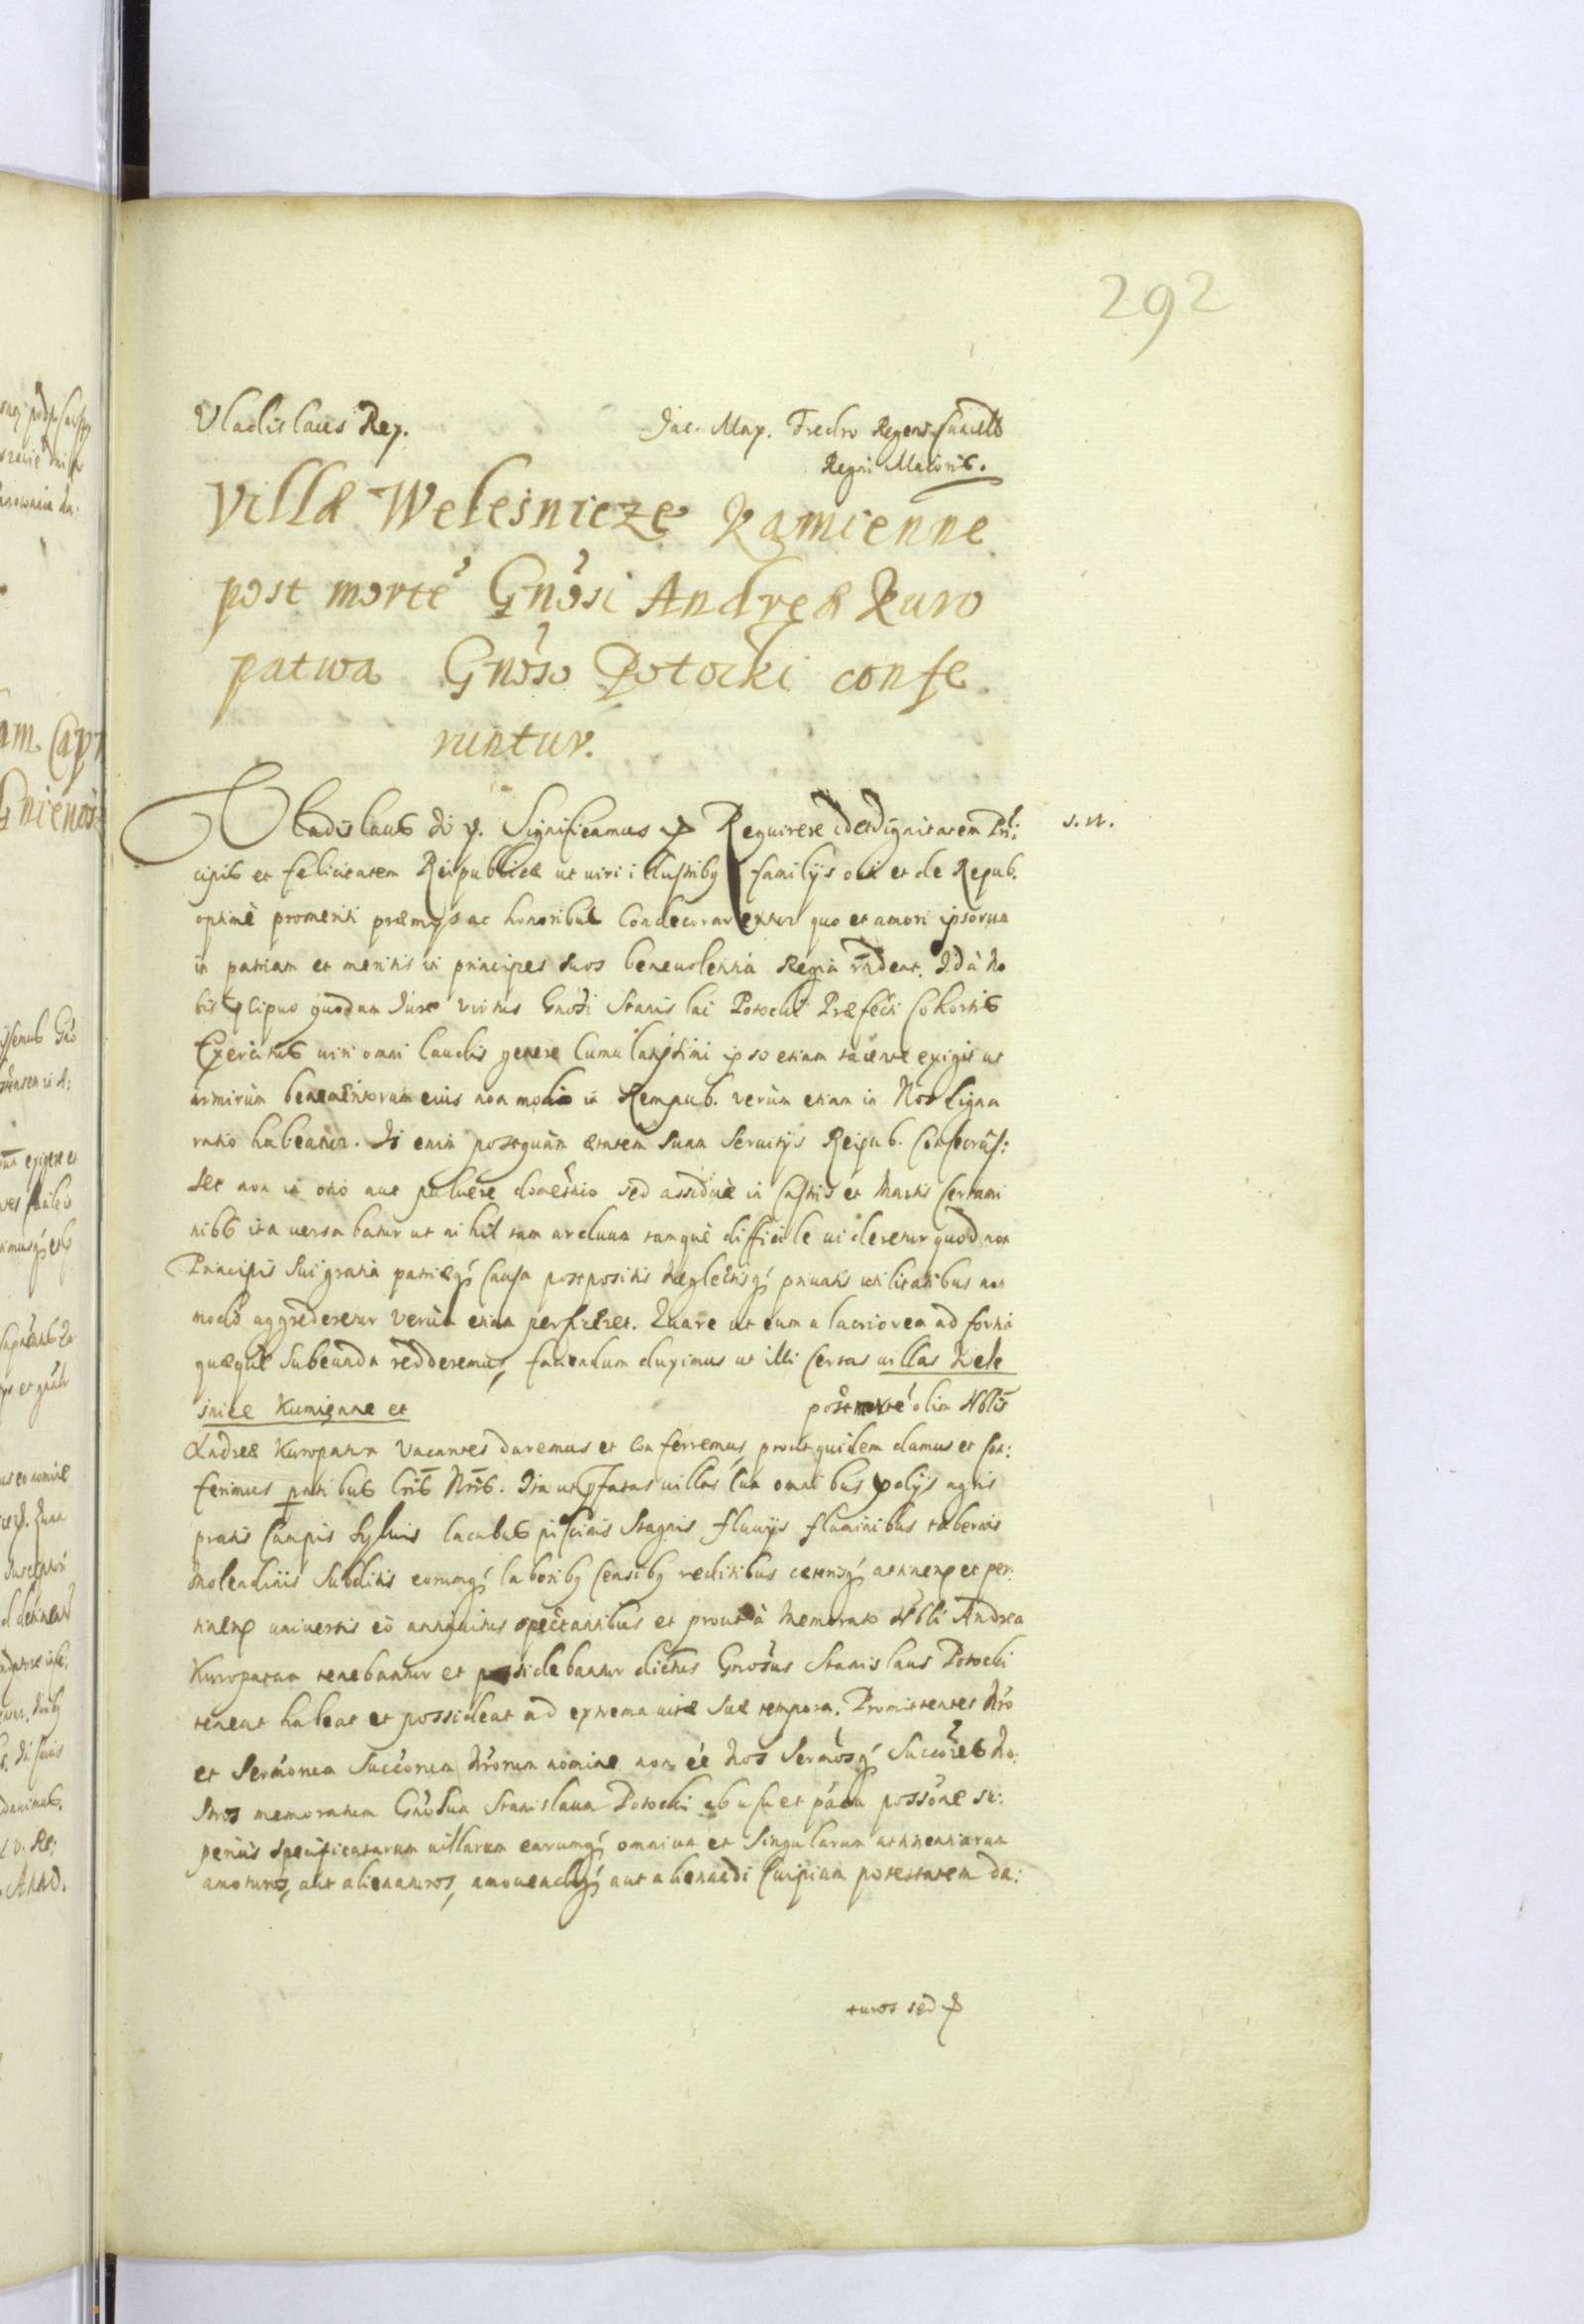 292
Vladislaus Rex. Jac. Max. Fredro Regens Cancell
Regni Maioris.
Villæ Weleśnicze Kamienne
post morte Gnosi Andreæ Kuro
patwa Gnoso Potocki confe
runtur.
Vladislaus &. Significamus & Requirere id et dignitatem Prī: s. n.
cipis et felicitatem Reipublicæ ut uiri illustribq familijs orti et de Repub.
optimè promeriti præmijs ac honoribus Condecorarentur quo et amori ipsorum
in patriam et meritis in principes suos beneuolentia Regia rñdeat. Id à No
bis quodam Jure virtus Gnosi Stanislai Potocki Præfecti Cohortis
Exercitus uiri omni laudis genere Cumulatissimi ipso etiam tacente exigit ut
nimirum benementorum eius non modo in Rempub. verùm etiam in Nos digna
ratio habeatur. Is enim postquam ætatem suam Seruitijs Reipub. Consecrass:
set non in otio aut puluere domestico sed assiduè in Castris et Martis Certami
nibs ita uersabatur ut nihil tam arduum tamquè difficile uideretur quod non
Principis Sui gratia patriæq; Causa postpositis neglectisq; priuatis utilitatibus non
modo aggrederetur verum etiam perficeret. Quare ut eum alacriorem ad fortia
quæque Subeunda redderemus, faciendum duximus ut illi Certas uillas Wele
śnice Kumienne et post morte olim Nblis
Andreæ Kuropatwa Vacantes daremus et Conferremus, prout quidem damus et Con:
ferimus pntibus Lris Nris. Ita ut pfatas uillas Cum omnibus agris
pratis Campis Syluis lacubus piscinis Stagnis fluuijs fluminibus tabernis
Molendinis Subditis eorumq; laboribq Censibq reditibus ceterisq; attinenc et per:
tinenc uniuersis eò antiquitus spectantibus et prout à memorato Nbli Andrea
Kuropatwa tenebantur et possidebantur dictus Gnosus Stanislaus Potocki
teneat habeat et possideat ad extrema uitæ suæ tempora. Promittentes Nro
et Sermorum Succorum Nrorum nomine non ee Nos Sermosq; Succores No:
stros memoratum Gnosum Stanislaum Potocki ab usu et possone su:
perius specificatarum uillarum earumq; omnium et Singularum attinentiarum
amoturos, aut alienaturos, amouendiq; aut alienandi Cuipiam potestatem da:
turos sed &